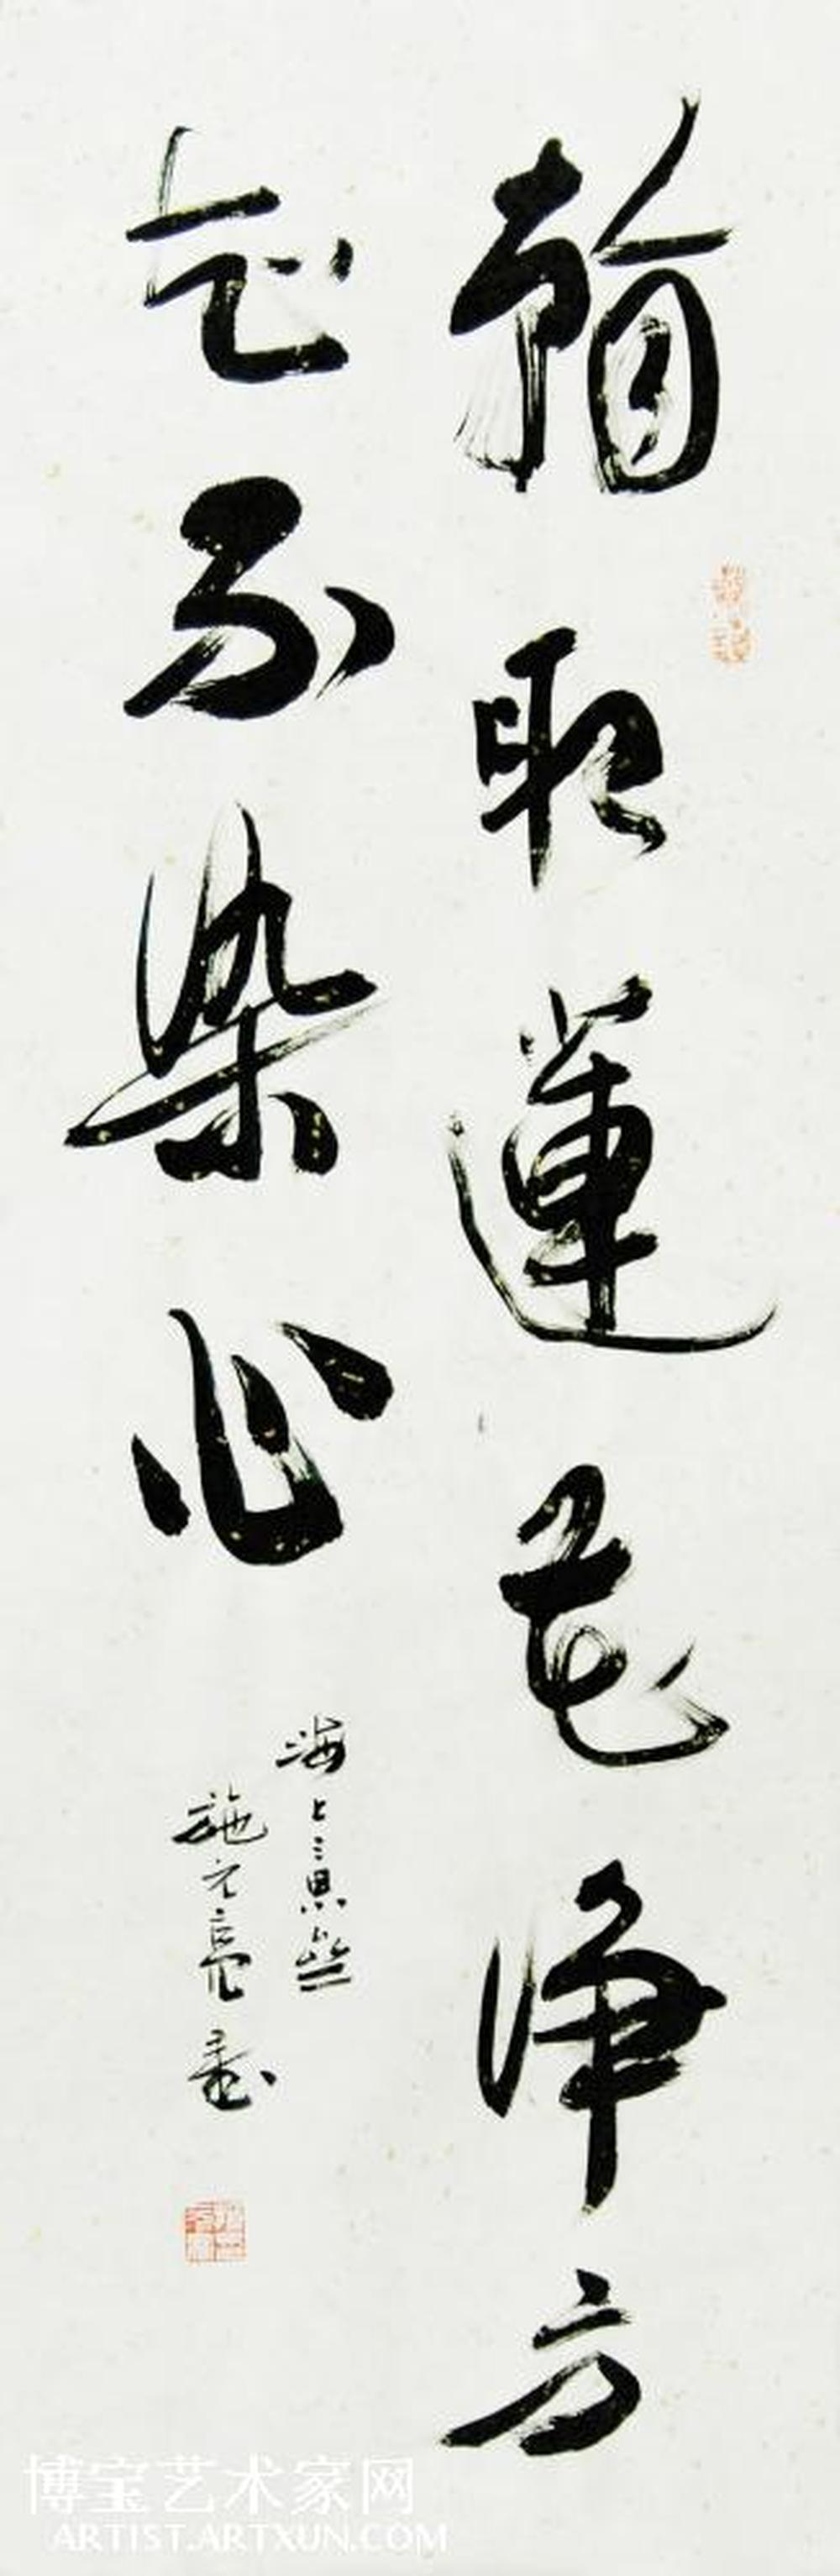 取蓮花淨方
知不染心
海上三
施元亮書
博宝艺术家网
ARTIST.ARTXUN.COM